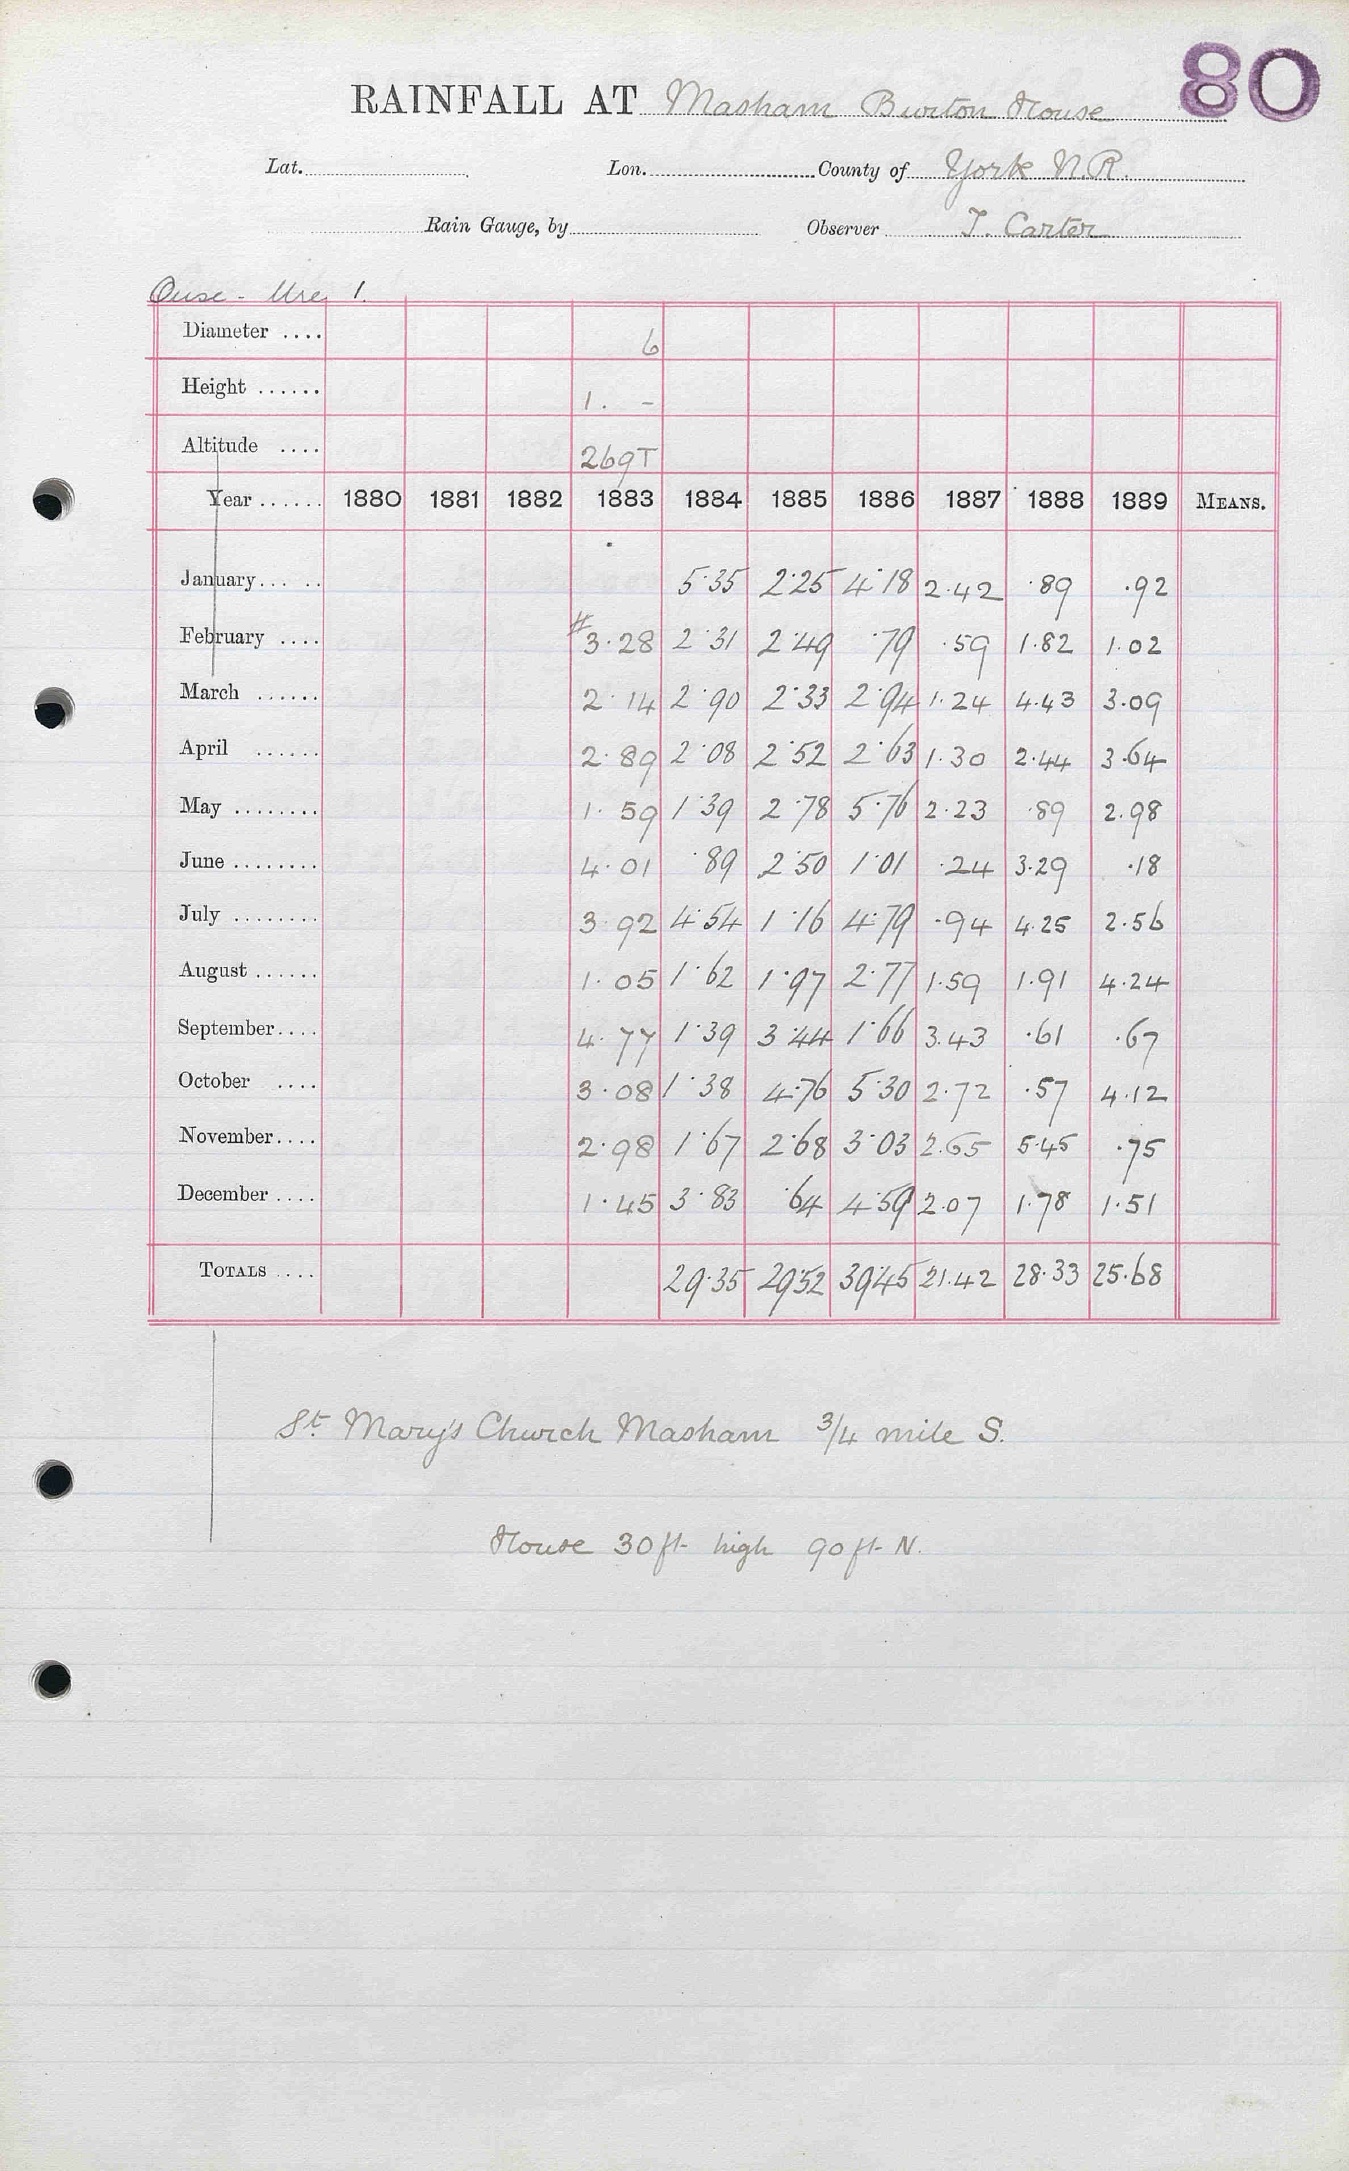 80
RAINFALL AT Masham Burton House
Lat. Lon. County of York N.R.
Rain Gauge, by Observer T. Carter
Ouse - Ure 1.
Diameter .... 6
Height ...... 1. -
Altitude .... 269T
Year ...... 1880 1881 1882 1883 1884 1885 1886 1887 1888 1889 MEANS.
January... .. 5·35 2·25 4·18 2.42 ·89 .92
February .... #3.28 2·31 2·49 ·79 .59 1.82 1.02
March ...... 2.14 2·90 2·33 2·94 1.24 4.43 3.09
April ...... 2.89 2·08 2·52 2·63 1.30 2.44 3.64
May ........ 1.59 1·39 2·78 5·76 2.23 ·89 2.98
June ........ 4.01 ·89 2·50 1·01 .24 3.29 .18
July ........ 3.92 4·54 1·16 4·79 .94 4.25 2.56
August ...... 1.05 1·62 1·97 2·77 1.59 1.91 4.24
September.... 4.77 1·39 3·44 1·66 3.43 .61 .67
October .... 3.08 1·38 4·76 5·30 2.72 .57 4.12
November.... 2.98 1·67 2·68 3·03 2.65 5.45 .75
December .... 1.45 3·83 ·64 4·59 2.07 1.78 1.51
TOTALS .... 29·35 29·52 39·45 21.42 28.33 25.68
St. Mary's Church Masham 3/4 mile S.
House 30ft. high 90ft. N.